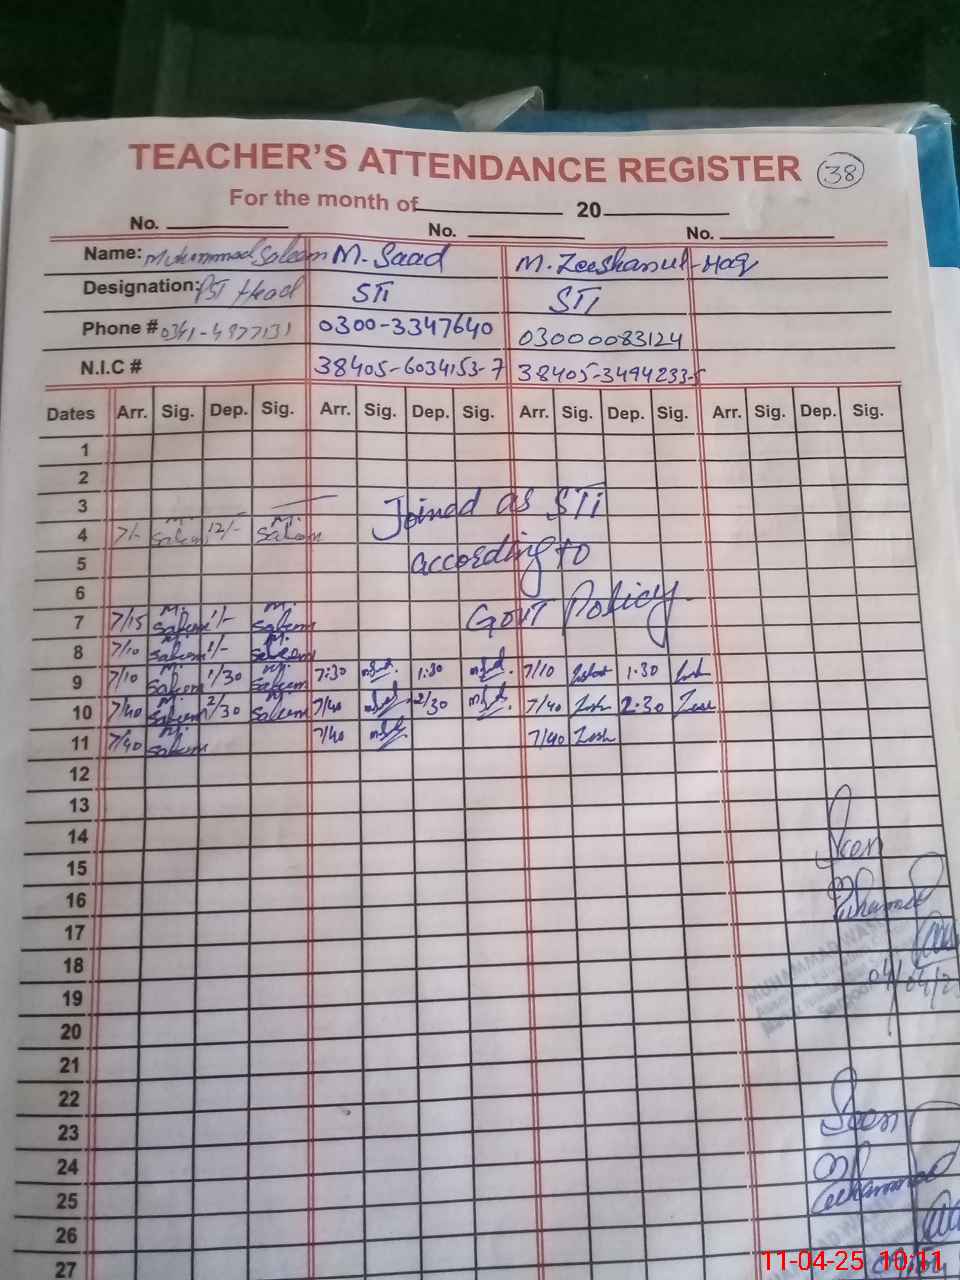 TEACHER'S ATTENDANCE REGISTER 38
For the month of 20
No. No. No.
Name: Muhammad Saleem M. Saad M. Zeeshanul-Haq
Designation: PST Head STI STI
Phone # 0341-4977131 0300-3347640 03000083124
N.I.C # 38405-6034153-7 38405-3494233-5
Dates Arr. Sig. Dep. Sig. Arr. Sig. Dep. Sig. Arr. Sig. Dep. Sig. Arr. Sig. Dep. Sig.
1
2
3 Joined as STI
4 7/- M. Saleem 12/- M. Saleem
5 according to
6
7 7/15 M. Saleem 1/- M. Saleem Govt Policy
8 7/10 M. Saleem 1/- M. Saleem
9 7/10 M. Saleem 1/30 M. Saleem 7:30 1:30 7/10 1.30
10 7/40 M. Saleem 2/30 M. Saleem 7/40 2/30 7/40 Zesh 2.30 Zesh
11 7/40 M. Saleem 7/40 7/40 Zesh
12
13
14
Seen
15
16
Muhammad
17
18
MUHAMMAD WA
04/04/25
19
20
21
22
Seen
23
24
Muhammad
25
26
27
11-04-25 10:11